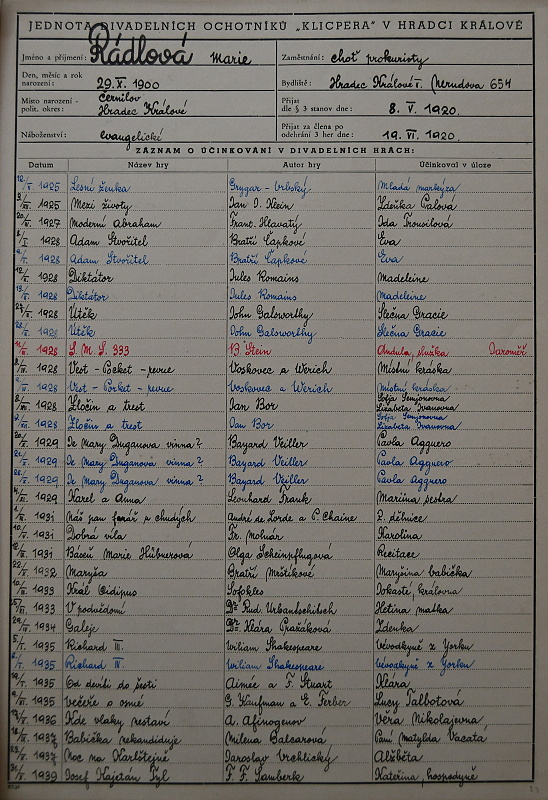 JEDNOTA DIVADELNÍCH OCHOTNÍKŮ „KLICPERA" V HRADCI KRÁLOVÉ
Jméno a příjmení: Rádlová Marie Zaměstnání: choť prokuristy
Den, měsíc a rok narození: 29. X. 1900 Bydliště: Hradec Králové I. Nerudova 654
Místo narození - polit. okres: Černilov Hradec Králové Přijat dle § 3 stanov dne: 8. V. 1920.
Náboženství: evangelické Přijat za člena po odehrání 3 her dne: 19. VI. 1920.
ZÁZNAM O ÚČINKOVÁNÍ V DIVADELNÍCH HRÁCH:
Datum Název hry Autor hry Účinkoval v úloze
1925 Lesní ženka Grygar - Vrbský Mladá markýza
1925 Mezi životy Jan J. Klein Zdeňka Palová
1927 Moderní Abraham Frant. Hlavatý Ida Trousilová
1928 Adam Stvořitel Bratří Čapkové Eva
1928 Adam Stvořitel Bratří Čapkové Eva
1928 Diktátor Jules Romains Madeleine
1928 Diktátor Jules Romains Madeleine
1928 Útěk John Galsworthy Slečna Gracie
1928 Útěk John Galsworthy Slečna Gracie
1928 S. M. S. 333 B Stein Andula, služka Jaroměř
1928 Vest - Pocket - revue Voskovec a Werich Místní kráska
1928 Vest - Pocket - revue Voskovec a Werich Místní kráska
1928 Zločin a trest Jan Bor Sofja Semjonovna Lizabeta Ivanovna
1928 Zločin a trest Jan Bor Sofja Semjonovna Lizabeta Ivanovna
1929 Je Mary Duganova vinna? Bayard Veiller Pavla Agguero
1929 Je Mary Duganova vinna? Bayard Veiller Pavla Agguero
1929 Je Mary Duganova vinna? Bayard Veiller Pavla Agguero
1929 Karel a Anna Leonhard Frank Mariina sestra
1931 Náš pan farář u chudých André de Lorde a P. Chaine 2. dělnice
1931 Dobrá víla Fr. Molnár Karolina
1931 Báseň Marie Hübnerová Olga Scheinpflugová Recitace
1932 Maryša Bratří Mrštíkové Maryšina babička
1933 Král Oidipus Sofokles Iokasté, královna
1933 V podvědomí Dr. Rud. Urbantschitsch Hetina matka
1934 Galeje Dr. Klára Pražáková Zdenka
1935 Richard III. Wiliam Shakespeare Vévodkyně z Yorku
1935 Richard III. Wiliam Shakespeare Vévodkyně z Yorku
1935 Od devíti do šesti Aimée a F. Stuart Klára
1935 Večeře o osmé G. Kaufman a E. Ferber Lucy Talbotová
1936 Kde vlaky nestaví A. Afinogenov Věra Nikolajevna
1937 Babička nekandiduje Milena Balcarová Paní Matylda Vacata
1937 Noc na Karlštejně Jaroslav Vrchlický Alžběta
1939 Josef Kajetán Tyl F. F. Šamberk Kateřina, hospodyně